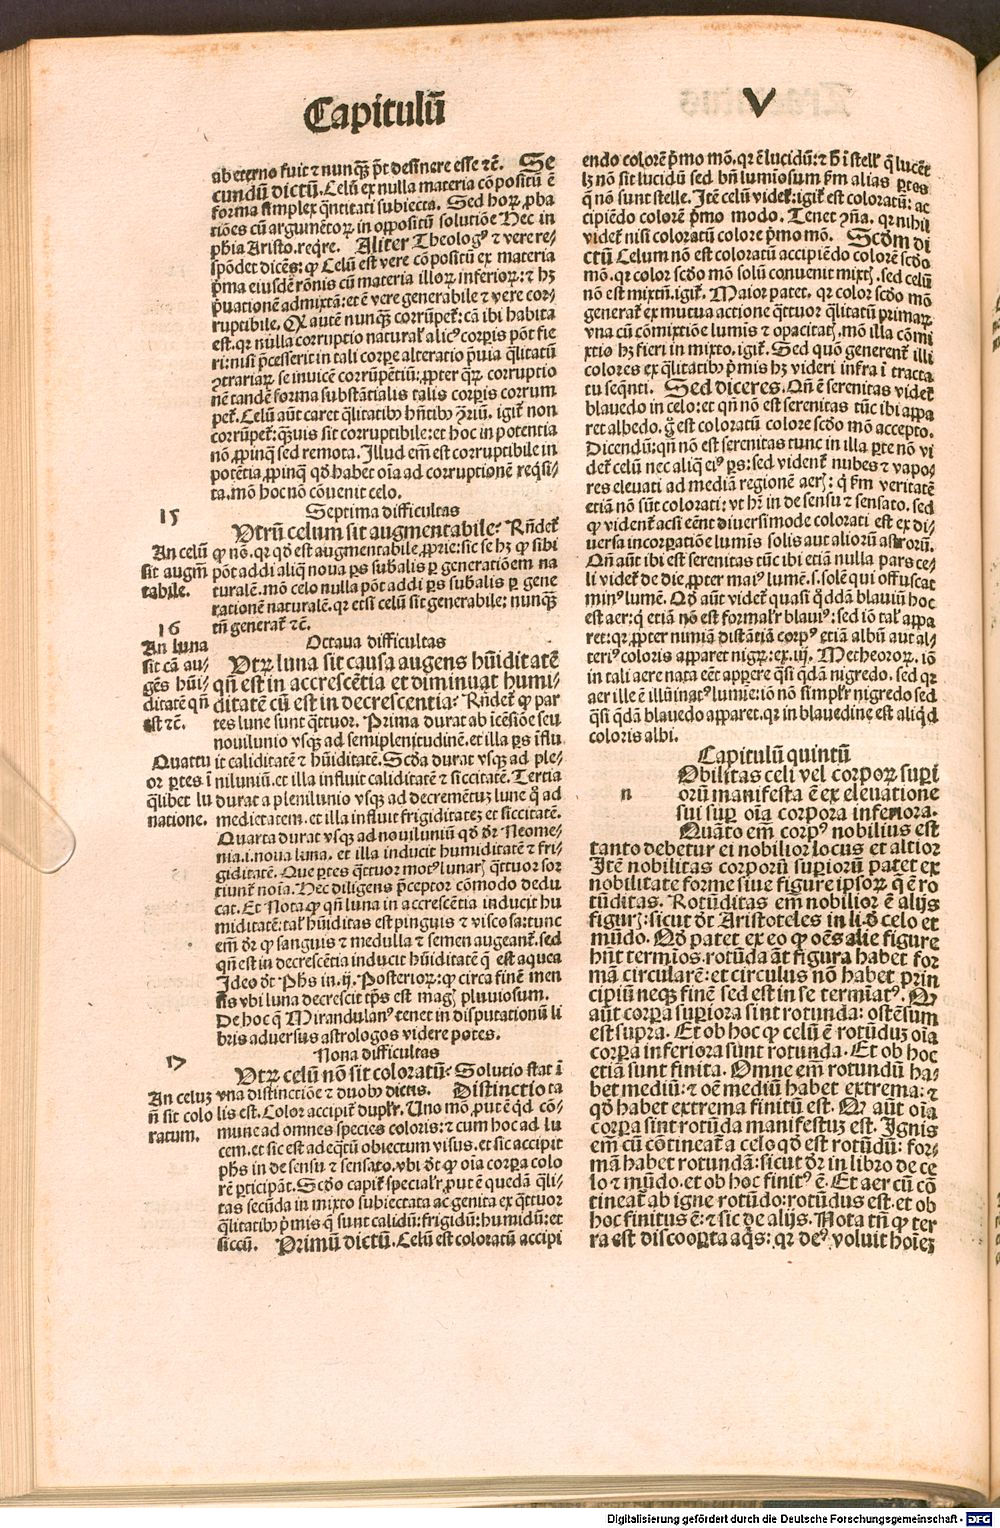 Capitulū V
ab eterno fuit ⁊ nunqȝ pōt desinere esse ⁊c̄. Se
cundū dictū. Celū ex nulla materia cōpositū ē
forma simplex q̄ntitati subiecta. Sed hoꝝ ꝓba
tiōes cū argumētoꝝ in oppositū solutiōe Uec in
phia Aristo. reqre. Aliter Theologꝰ ⁊ vere re-
spōdet dicēs: ꝙ Celū est vere cōpositū ex materia
p̄ma eiusdē rōnis cū materia illoꝝ inferioꝝ: ⁊ hȝ
puationē admixtā: et ē vere generabile ⁊ vere cor-
ruptibile. Qꝛ autē nunqȝ corrūpet᷑: cā ibi habita
est. qꝛ nulla corruptio natural᷑ alicꝰ corpis pōt fie
ri: nisi p̄cesserit in tali corpe alteratio p̄uia q̄litatū
ꝯtrariaꝝ se inuicē corrūpētiū: ꝓpter qꝝ corruptio
nē tandē forma substātialis talis corpis corrum
pet᷑. Celū aūt caret q̄litatibꝰ hn̄tibꝰ ꝯ̄riū. igit᷑ non
corrūpet᷑: qȝuis sit corruptibile: et hoc in potentia
nō ꝓpinq̄ sed remota. Illud em̄ est corruptibile in
potētia ꝓpinq̄ qd̄ habet oīa ad corruptionē reqsi-
ta. mō hoc nō cōuenit celo.
Septima difficultas
15
An celū
sit augm̄
tabile.
Utrū celum sit augmentabile. Rn̄det᷑
ꝙ nō. qꝛ qd̄ est augmentabile ꝓprie: sic se hȝ ꝙ sibi
pōt addi aliq̄ noua ps sub̄alis ꝑ generatiōem na
turalē. mō celo nulla pōt addi ps sub̄alis ꝑ gene
rationē naturalē. qꝛ etsi celū sit generabile: nunqȝ
tn̄ generat᷑ ⁊c̄.
Octaua difficultas
16
An luna
sit cā au-
gēs hūi-
ditatē qn̄
est ⁊c̄.
Utꝝ luna sit causa augens hūiditatē
qn̄ est in accrescētia et diminuat humi-
ditatē cū est in decrescentia. Rn̄det᷑ ꝙ par
tes lune sunt q̄ttuor. Prima durat ab icēsiōe seu
nouilunio vsqȝ ad semiplenitudinē. et illa ps īflu
Quattu
or partes ī
q̄libet lu
natione.
it caliditatē ⁊ hūiditatē. Scd̄a durat vsqȝ ad ple-
niluniū. et illa influit caliditatē ⁊ siccitatē. Tertia
durat a plenilunio vsqȝ ad decremētuȝ lune q̄ ad
medietatem. et illa influit frigiditateȝ et siccitatē.
Quarta durat vsqȝ ad nouiluniū qd̄ dr̄ Neome-
nia. i. noua luna. et illa inducit humiditatē ⁊ fri-
giditatē. Que ptes q̄ttuor motꝰ lunarꝭ q̄ttuor sor
tiunt᷑ noīa. Uec diligens p̄ceptor cōmodo dedu
cat. Et Nota ꝙ qn̄ luna in accrescētia inducit hu
miditatē: tal᷑ hūiditas est pinguis ⁊ viscosa: tunc
em̄ dr̄ ꝙ sanguis ⁊ medulla ⁊ semen augeant᷑. sed
qn̄ est in decrescētia inducit hūiditatē q̄ est aquea
Ideo dt̄ Phs in .ij. Posterioꝝ: ꝙ circa finē men
sis vbi luna decrescit tps est magꝭ pluuiosum.
De hoc q̄ Mirandulanꝰ tenet in disputationū li
bris aduersus astrologos videre potes.
Nona difficultas
17
An celuȝ
n̄ sit colo
ratum.
Utꝝ celū nō sit coloratū. Solutio stat ī
vna distinctiōe ⁊ duobꝰ dictis. Distinctio ta
lis est. Color accipit᷑ dupl᷑r. Uno mō ꝓut ē qd̄ cō-
mune ad omnes species coloris: ⁊ cum hoc ad lu
cem. et sic est adeq̄tū obiectum visus. et sic accipit
phs in de sensu ⁊ sensato. vbi dt̄ ꝙ oīa corpa colo
rē pticipāt. Scd̄o capit᷑ special᷑r ꝓut ē quedā q̄li-
tas secūda in mixto subiectata ac genita ex q̄ttuor
q̄litatibꝰ p̄mis q̄ sunt calidū: frigidū: humidū: et
siccū. Primū dictū. Celū est coloratū accipi
endo colorē p̄mo mō. qꝛ ē lucidū: ⁊ hͦ ī stell᷑ q̄ lucēt
lȝ nō sit lucidū sed bn̄ luminosum ẜm alias ptes
q̄ nō sunt stelle. Itē celū videt᷑: igit᷑ est coloratū: ac
cipiēdo colorē p̄mo modo. Tenet ꝯn̄a. qꝛ nihil
videt᷑ nisi coloratū colore p̄mo mō. Scd̄m di
ctū Celum nō est coloratū accipiēdo colorē scd̄o
mō. qꝛ color scd̄o mō solū conuenit mixtꝭ. sed celū
nō est mixtū. igit᷑. Maior patet. qꝛ color scd̄o mō
generat᷑ ex mutua actione q̄ttuor q̄litatū primaꝝ
vna cū cōmixtiōe lumīs ⁊ opacitatꝭ. mō illa cōmi
xtio hȝ fieri in mixto. igit᷑. Sed quō generent᷑ illi
colores ex q̄litatibꝰ p̄mis hȝ videri infra ī tracta
tu seqn̄ti. Sed diceres. Qn̄ ē serenitas videt᷑
blauedo in celo: et qn̄ nō est serenitas tūc ibi appa
ret albedo. g̊ est coloratū colore scd̄o mō accepto.
Dicendū: qn̄ nō est serenitas tunc in illa pte nō vi
det᷑ celū nec aliq̄ eiꝰ ps: sed vident᷑ nubes ⁊ vapo-
res eleuati ad mediā regionē aerꝭ: q̄ ẜm veritatē
etiā nō sūt colorati: vt hr̄ in de sensu ⁊ sensato. sed
ꝙ vident᷑ acsi eēnt diuersimode colorati est ex di-
uersa incorpatiōe lumīs solis aut alioꝝ astroꝝ.
Qn̄ aūt ibi est serenitas tūc ibi etiā nulla pars ce-
li videt᷑ de die ꝓpter maiꝰ lumē. s. solē qui offuscat
minꝰ lumē. Qd̄ aūt videt᷑ quasi q̄ddā blauiū hoc
est aer: q̄ etiā nō est formal᷑r blauiꝰ: sed iō tal᷑ appa
ret: qꝛ ꝓpter nimiā distātiā corpꝰ etiā albū aut al-
teriꝰ coloris apparet nigꝝ: ex .iij. Metheoroꝝ. iō
in tali aere nata eēt apparere q̄si q̄dā nigredo. sed qꝛ
aer ille ē illūinatꝰ lumīe: iō nō simpl᷑r nigredo sed
q̄si q̄dā blauedo apparet. qꝛ in blauedine est aliqd̄
coloris albi.
Capitulū quintū
n
Obilitas celi vel corpoꝝ supi
orū manifesta ē ex eleuatione
sui sup oīa corpora inferiora.
Quāto em̄ corpꝰ nobilius est
tanto debetur ei nobilior locus et altior
Itē nobilitas corporū supiorū patet ex
nobilitate forme siue figure ipsoꝝ q̄ ē ro
tūditas. Rotūditas em̄ nobilior ē alijs
figurꝭ: sicut dt̄ Aristoteles in li. d̄ celo et
mūdo. Qd̄ patet ex eo ꝙ oēs alie figure
hn̄t termīos. rotūda āt figura habet for
mā circularē: et circulus nō habet prin
cipiū neqȝ finē sed est in se termīatꝰ. Qꝛ
aūt corpa supiora sint rotunda: ostēsum
est supra. Et ob hoc ꝙ celū ē rotūduȝ oīa
corpa inferiora sunt rotunda. Et ob hoc
etiā sunt finita. Omne em̄ rotundū ha-
bet mediū: ⁊ oē mediū habet extrema: ⁊
qd̄ habet extrema finitū est. Qꝛ aūt oīa
corpa sint rotūda manifestuȝ est. Ignis
em̄ cū cōtineat᷑ a celo qd̄ est rotūdū: for-
mā habet rotundā: sicut dr̄ in libro de ce
lo ⁊ mūdo. et ob hoc finitꝰ ē. Et aer cū cō
tineat᷑ ab igne rotūdo: rotūdus est. et ob
hoc finitus ē: ⁊ sic de alijs. Nota tn̄ ꝙ ter
ra est discoopta aqs: qꝛ deꝰ voluit hoīeȝ
Digitalisierung gefördert durch die Deutsche Forschungsgemeinschaft - DFG